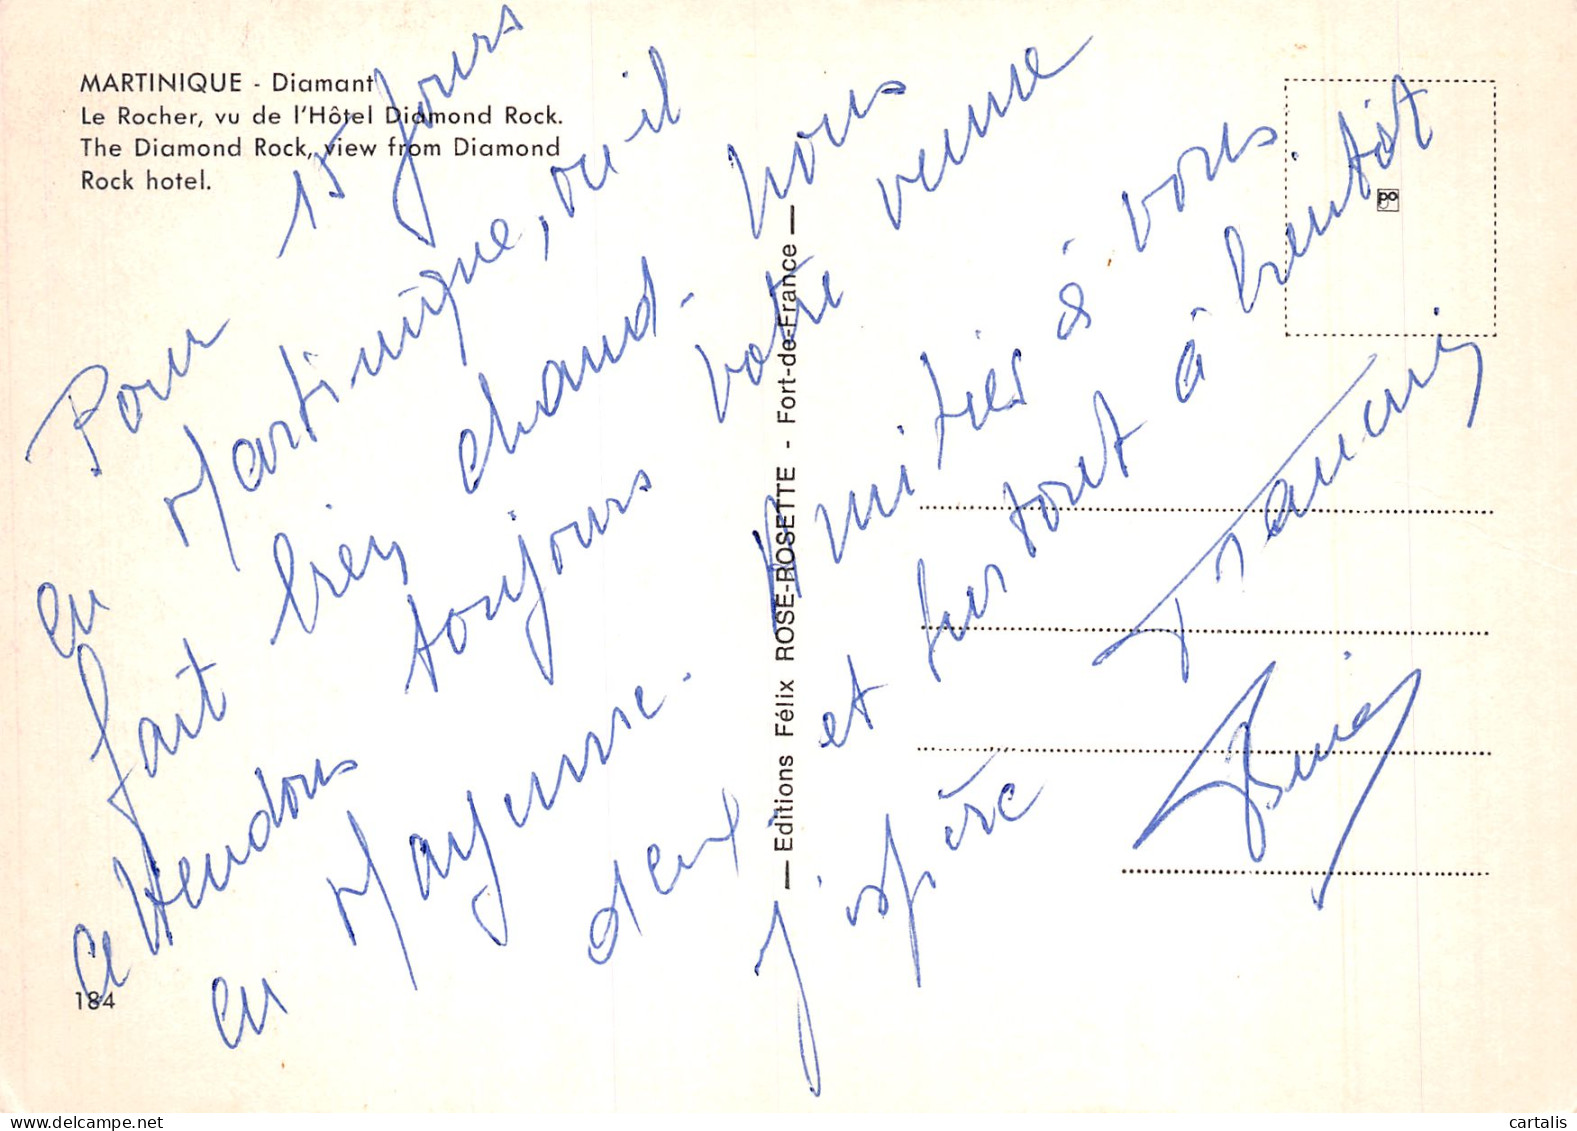 MARTINIQUE - Diamant
Le Rocher, vu de l'Hôtel Diamond Rock.
The Diamond Rock, view from Diamond
Rock hotel.
Pour 15 jours
en Martinique, où il
fait bien chaud - nous
attendons toujours votre venue
en Mayenne.
Amitiés à vous
deux et surtout à bientôt
j'espère
184
Editions Félix ROSE-ROSETTE - Fort-de-France
cartalis